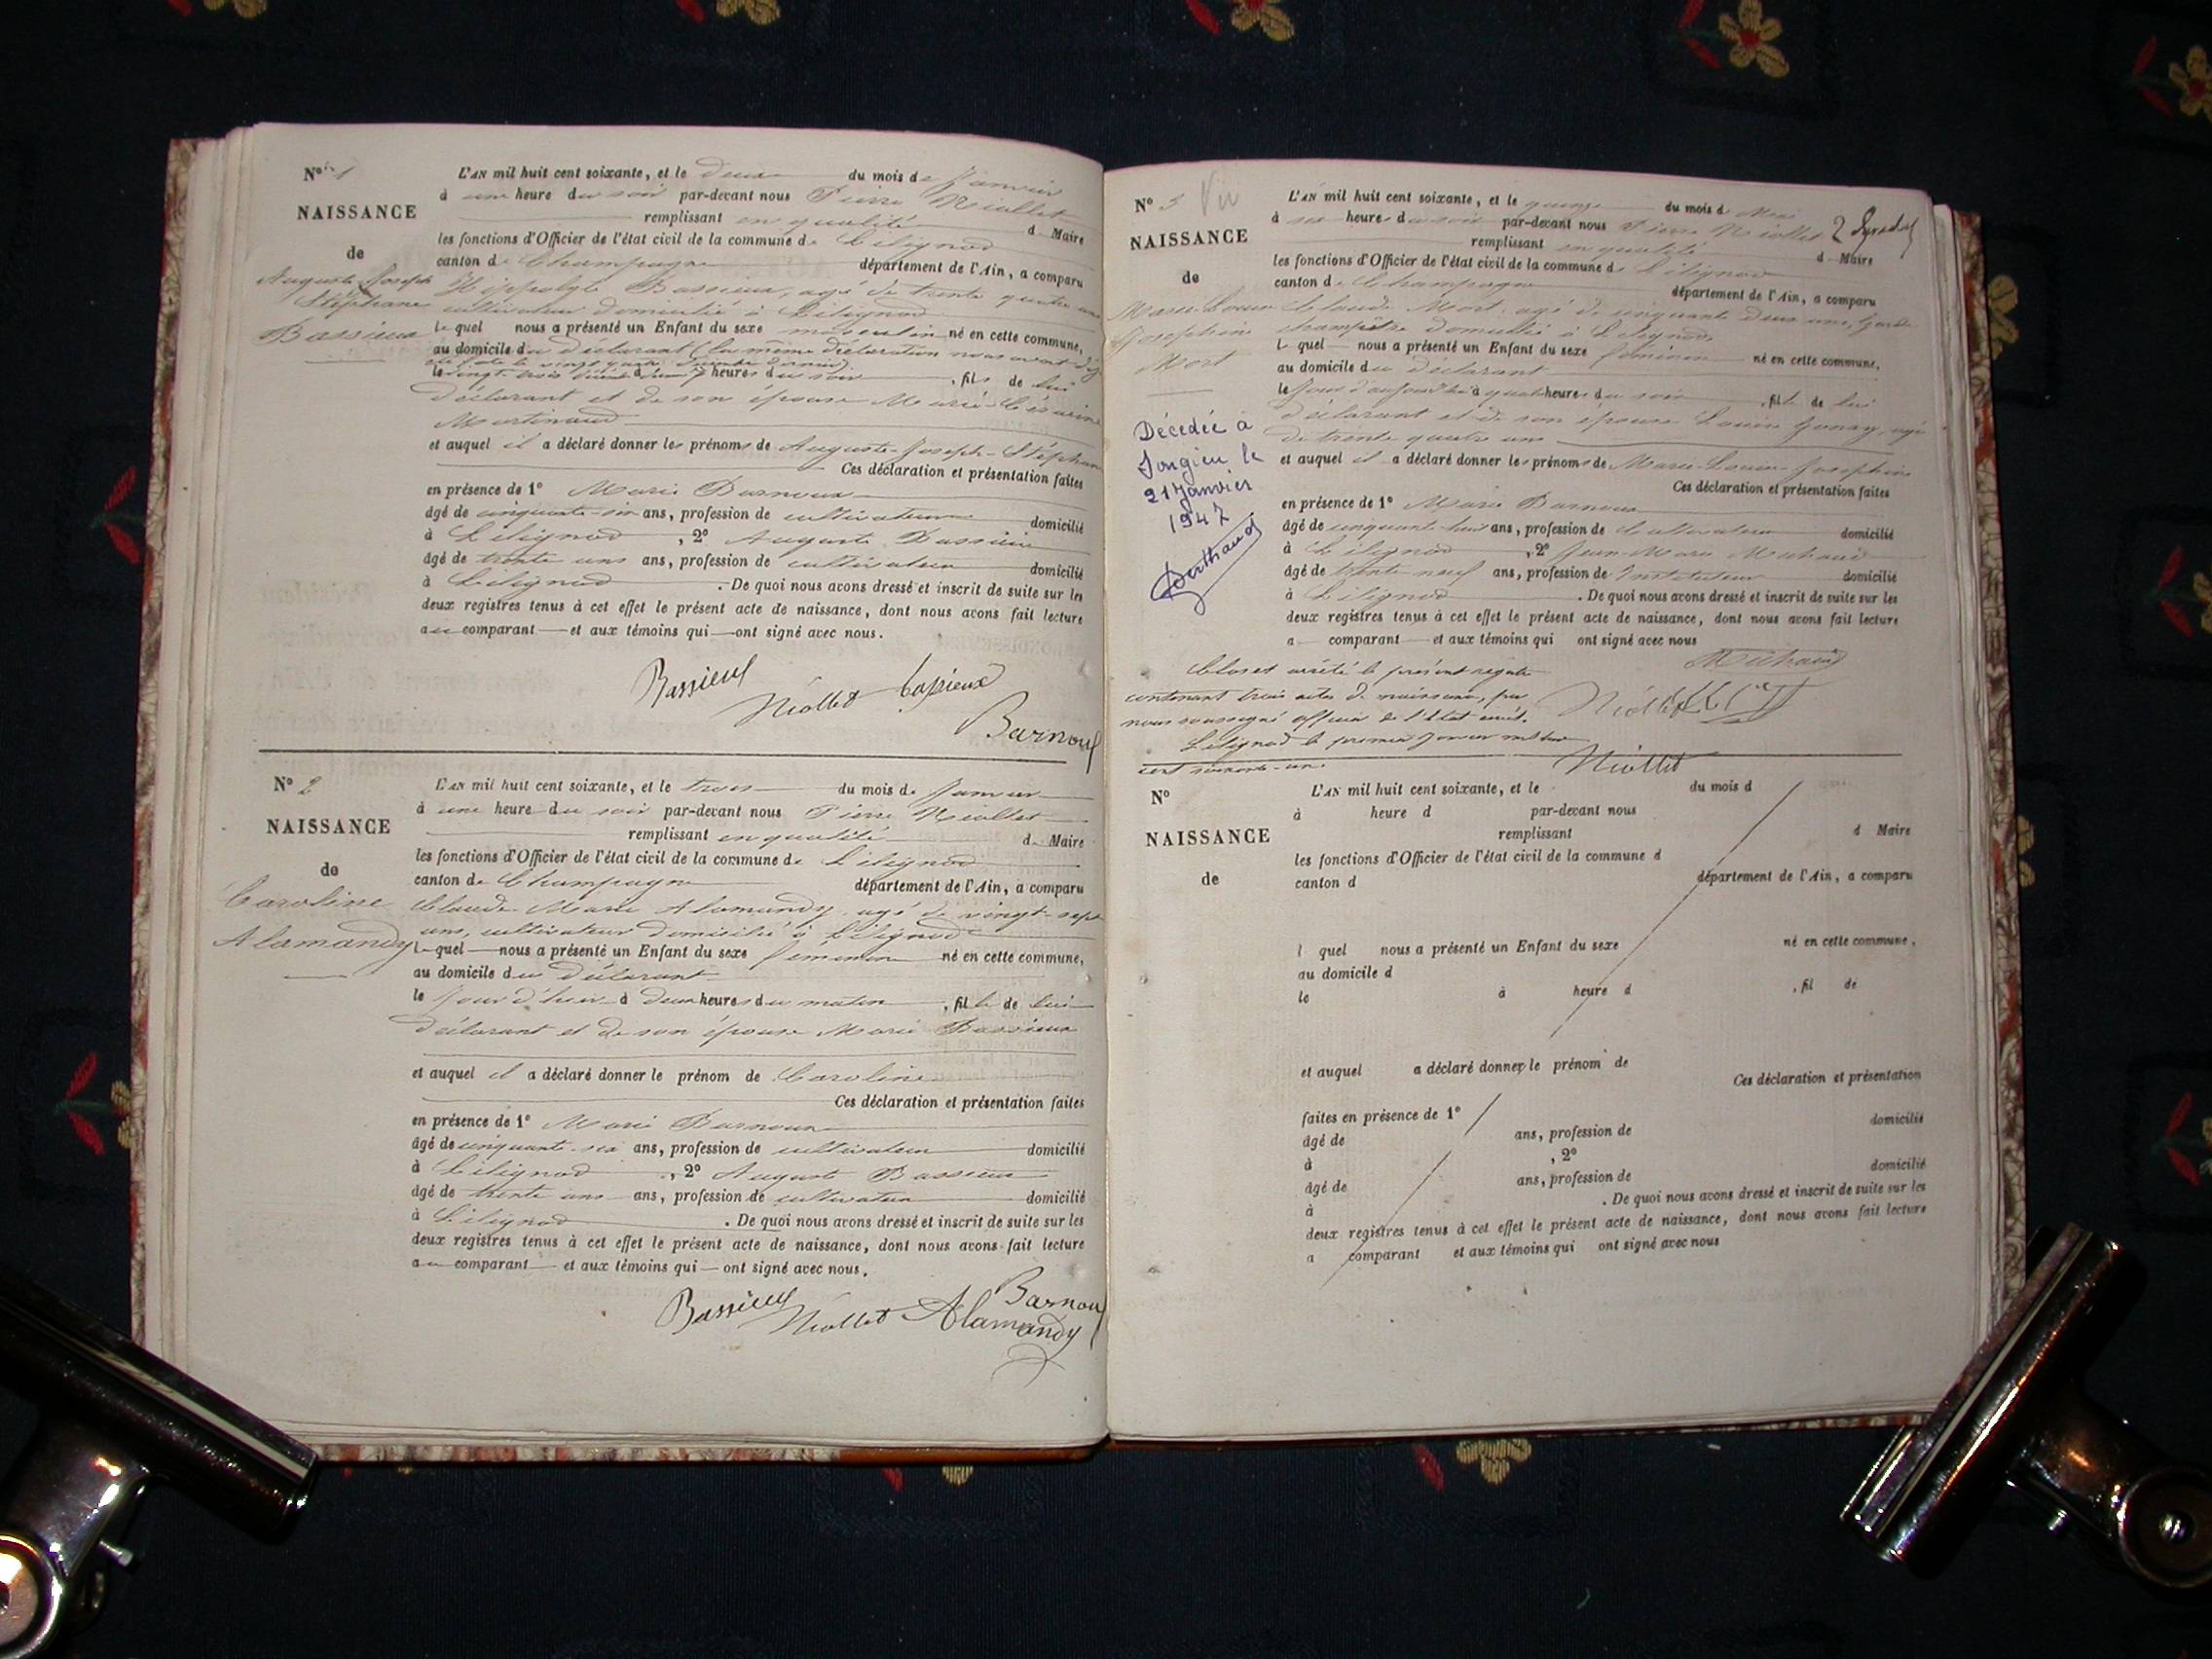 N° 1
NAISSANCE
de
Auguste Joseph
Stéphane
Bassieux
L'AN mil huit cent soixante, et le deux du mois de Janvier
à une heure du soir par-devant nous Pierre Niollet
remplissant en qualité de Maire
les fonctions d'Officier de l'état civil de la commune de Lilignod
canton de Champagne département de l'Ain, a comparu
Hippolyte Bassieux, agé de trente quatre ans
cultivateur domicilié à Lilignod
lequel nous a présenté un Enfant du sexe masculin né en cette commune,
au domicile du déclarant (la même déclaration nous avait
le vingt trois heures du soir, fils de lui
déclarant et de son épouse Marie Césarine
Martinand
et auquel il a déclaré donner les prénoms de Auguste-Joseph-Stéphane
Ces déclaration et présentation faites
en présence de 1° Marie Barnoux
âgé de cinquante-six ans, profession de cultivateur domicilié
à Lilignod, 2° Auguste Bassieux
âgé de trente uns ans, profession de cultivateur domicilié
à Lilignod. De quoi nous avons dressé et inscrit de suite sur les
deux registres tenus à cet effet le présent acte de naissance, dont nous avons fait lecture
au comparant et aux témoins qui ont signé avec nous.
Bassieux
Niollet
Barnoux
N° 2
NAISSANCE
de
Caroline
Alamandy
L'AN mil huit cent soixante, et le trois du mois de Janvier
à une heure du soir par-devant nous Pierre Niollet
remplissant en qualité de Maire
les fonctions d'Officier de l'état civil de la commune de Lilignod
canton de Champagne département de l'Ain, a comparu
Claude-Marie Alamandy, agé de vingt-sept
ans, cultivateur domicilié à Lilignod
lequel nous a présenté un Enfant du sexe féminin né en cette commune,
au domicile du déclarant
le jour d'hier à deux heures du matin, fille de lui
déclarant et de son épouse Marie Bassieux
et auquel il a déclaré donner le prénom de Caroline
Ces déclaration et présentation faites
en présence de 1° Marie Barnoux
âgé de cinquante-six ans, profession de cultivateur domicilié
à Lilignod, 2° Auguste Bassieux
âgé de trente uns ans, profession de cultivateur domicilié
à Lilignod. De quoi nous avons dressé et inscrit de suite sur les
deux registres tenus à cet effet le présent acte de naissance, dont nous avons fait lecture
au comparant et aux témoins qui ont signé avec nous.
Barnoux
Bassieux Niollet Alamandy
N° 3
NAISSANCE
de
Marie-Louise
Joséphine
Mort
Décédée à
Songieu le
21 Janvier
1947
Berthaud
L'AN mil huit cent soixante, et le quinze du mois de Mai
à six heures du soir par-devant nous Pierre Niollet
remplissant en qualité de Maire
les fonctions d'Officier de l'état civil de la commune de Lilignod
canton de Champagne département de l'Ain, a comparu
Claude Mort, agé de cinquante deux ans, Garde
champêtre domicilié à Lilignod
lequel nous a présenté un Enfant du sexe féminin né en cette commune,
au domicile du déclarant
le jour d'aujourd'hui à quatre heures du soir, fille de lui
déclarant et de son épouse Louise Gonay, agée
de trente quatre ans
et auquel il a déclaré donner les prénoms de Marie-Louise-Joséphine
Ces déclaration et présentation faites
en présence de 1° Marie Barnoux
âgé de cinquante huit ans, profession de Cultivateur domicilié
à Lilignod, 2° Jean-Marie Michaud
âgé de trente neuf ans, profession de Instituteur domicilié
à Lilignod. De quoi nous avons dressé et inscrit de suite sur les
deux registres tenus à cet effet le présent acte de naissance, dont nous avons fait lecture
a comparant et aux témoins qui ont signé avec nous
Michaud
Closet arrêté le présent registre
contenant trois actes de naissance, par
nous soussigné officier de l'état civil.
Lilignod le premier Janvier mil huit
cent soixante-un.
Niollet
N°
NAISSANCE
de
L'AN mil huit cent soixante, et le du mois d
à heure d par-devant nous
remplissant d Maire
les fonctions d'Officier de l'état civil de la commune d
canton d département de l'Ain, a comparu
l quel nous a présenté un Enfant du sexe né en cette commune,
au domicile d
le à heure d, fil de
et auquel a déclaré donner le prénom de
Ces déclaration et présentation
faites en présence de 1° domicilié
âgé de ans, profession de
à, 2° domicilié
âgé de ans, profession de
à. De quoi nous avons dressé et inscrit de suite sur les
deux registres tenus à cet effet le présent acte de naissance, dont nous avons fait lecture
a comparant et aux témoins qui ont signé avec nous